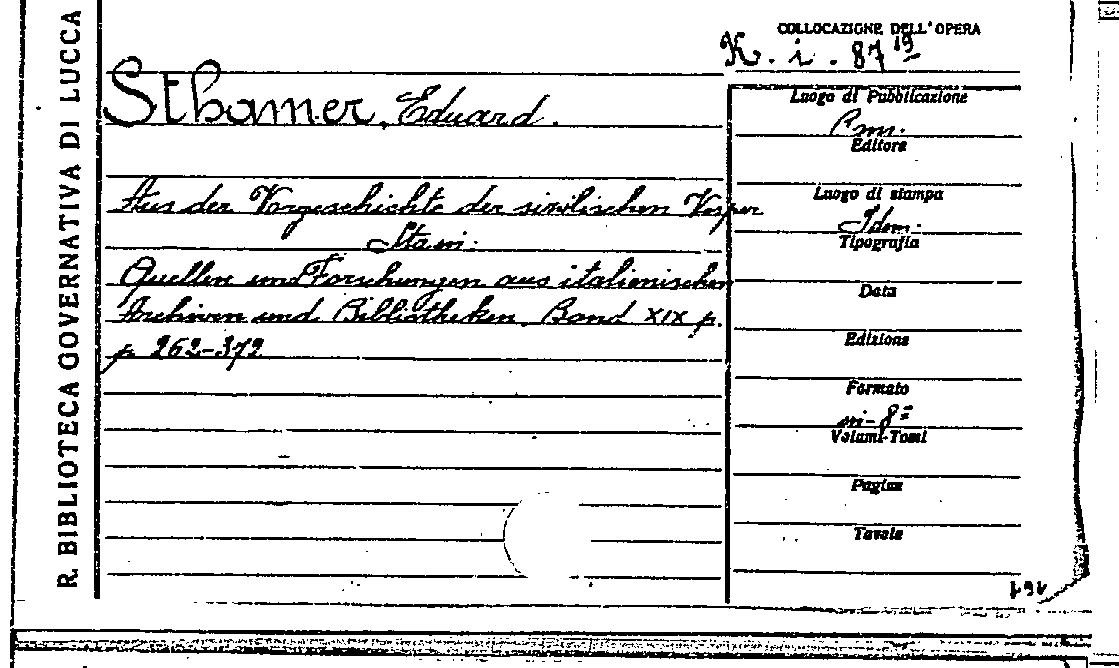 R. BIBLIOTECA GOVERNATIVA DI LUCCA
COLLOCAZIONE DELL'OPERA
K. i. 87 19
Sthamer, Eduard.
Aus der Vorgeschichte der sizilischen Vesper
Quellen und Forschungen aus italienischen
Archiven und Bibliotheken. Band XIX p.
p 262-372
Luogo di Pubblicazione
Editore
Luogo di stampa
Idem.
Tipografia
Data
Edizione
Formato
in-8º
Volumi-Tomi
Pagine
Tavole